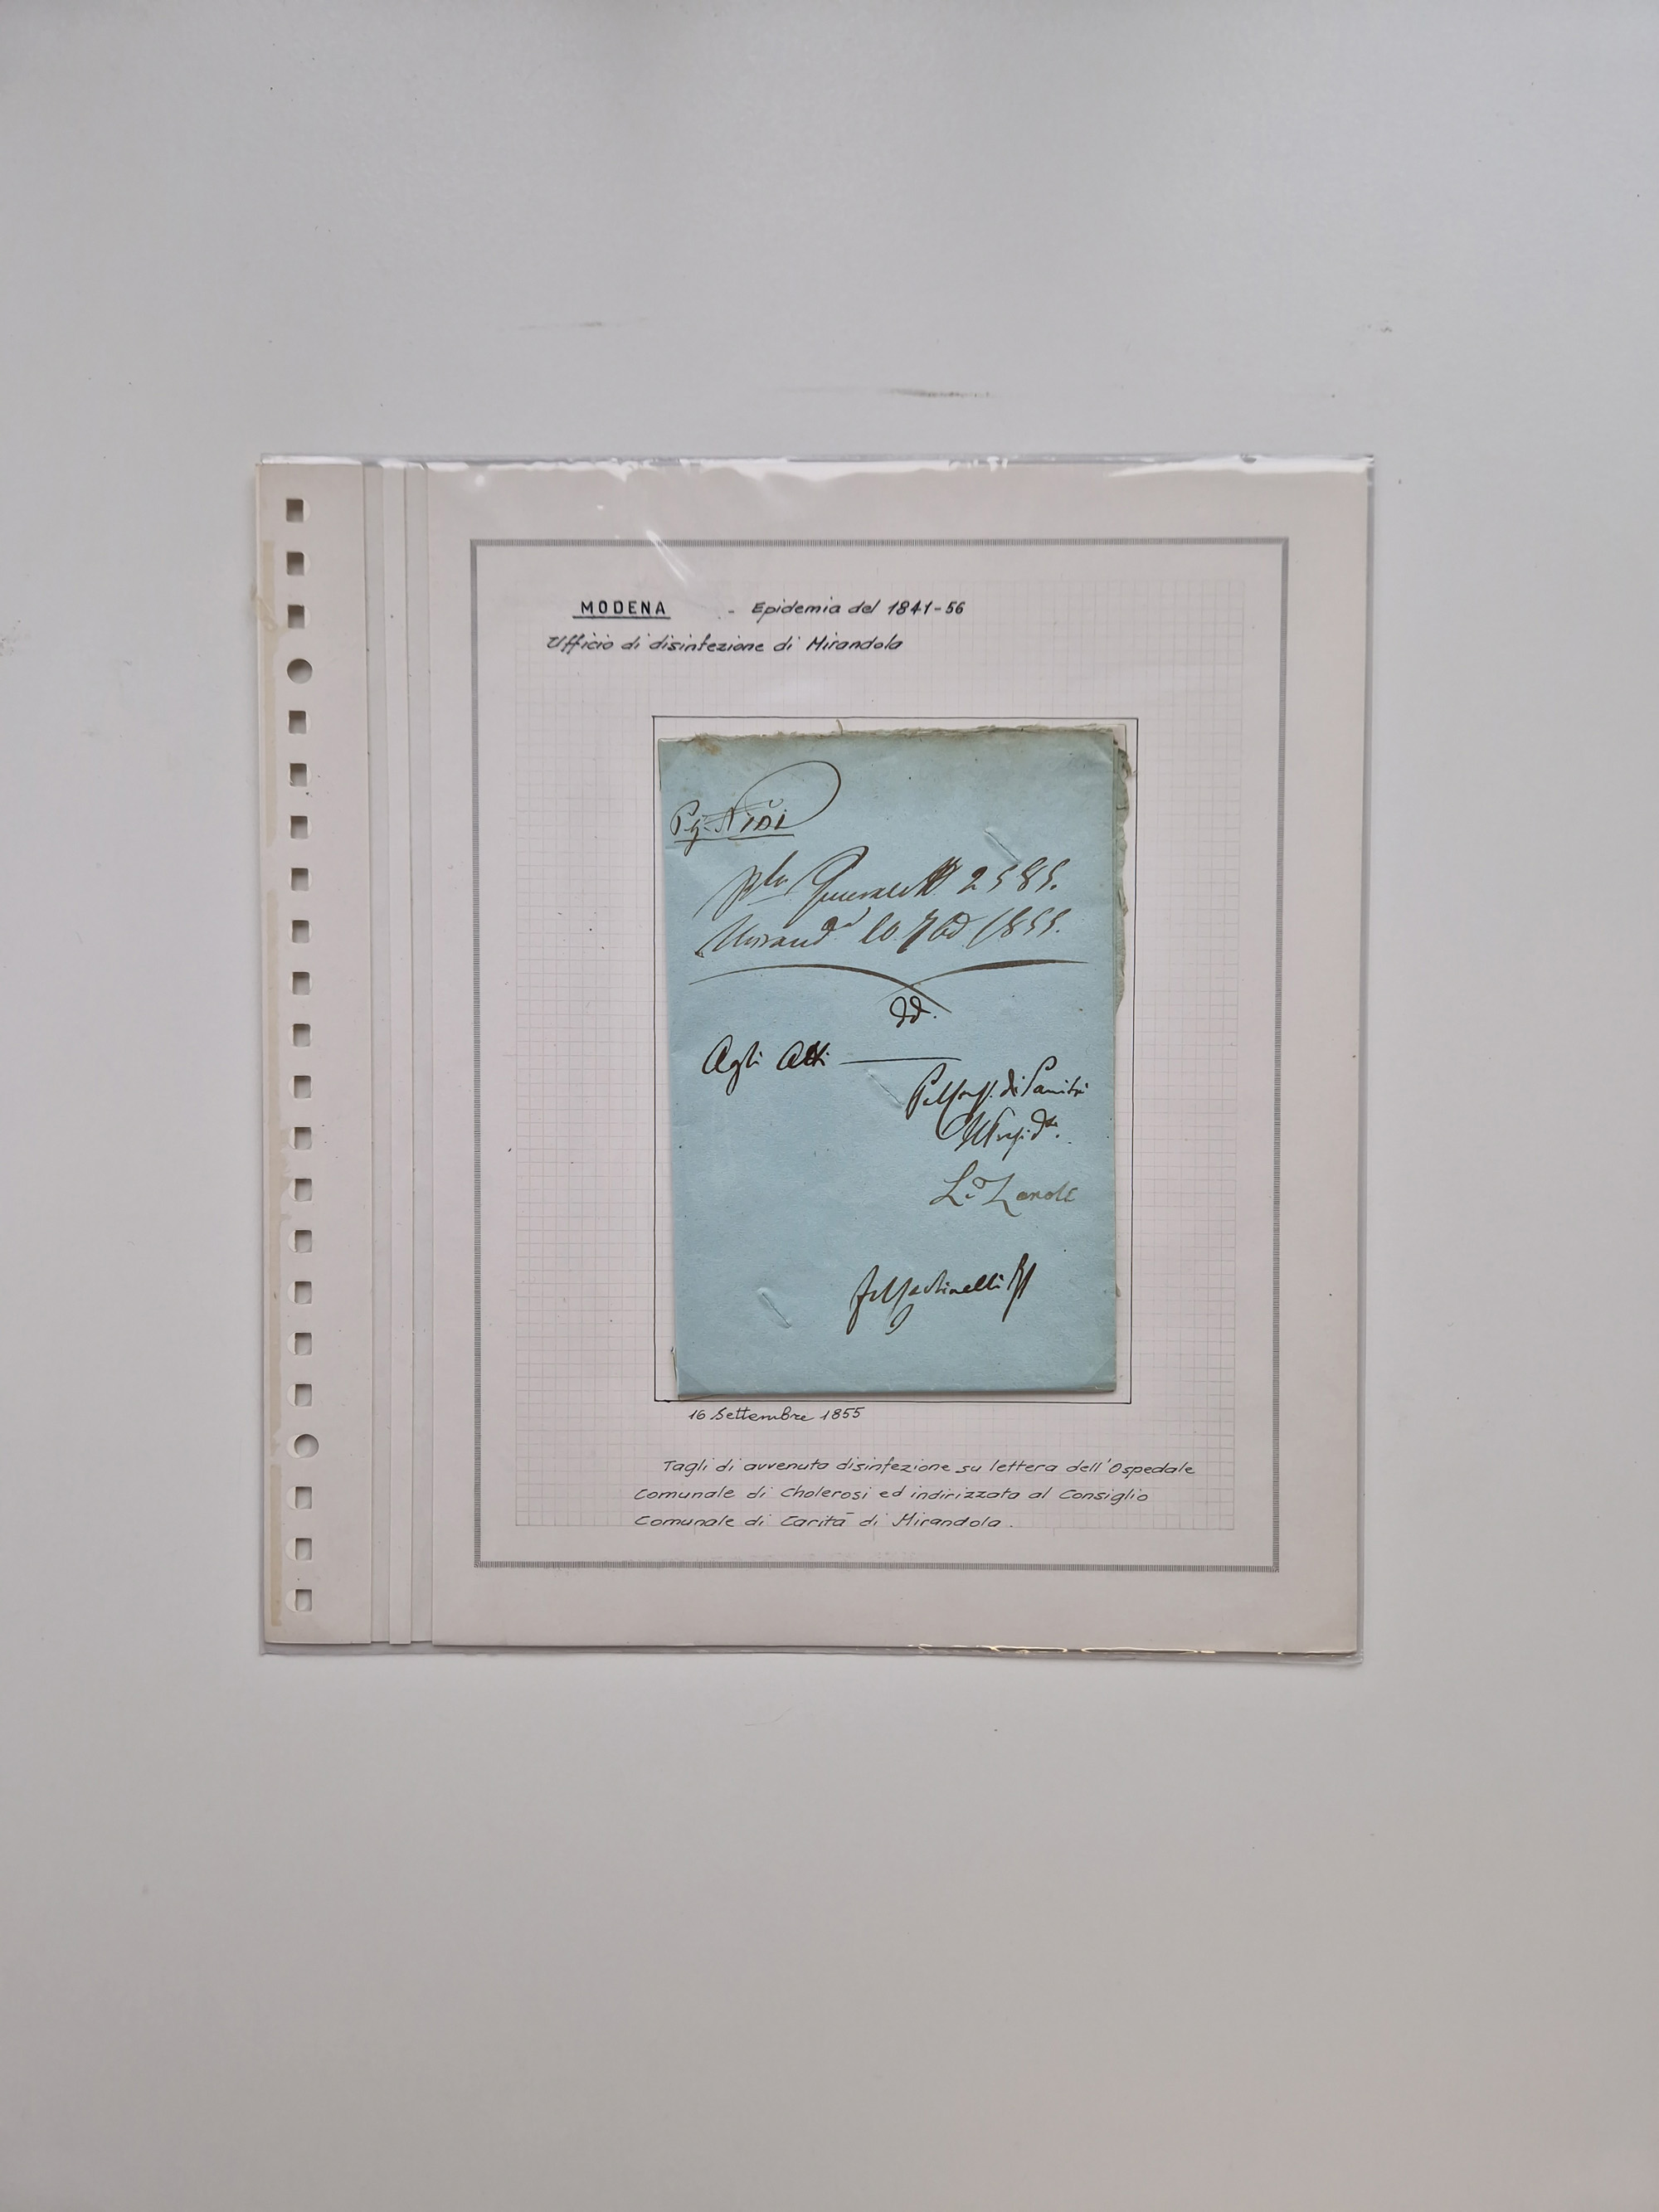 MODENA - Epidemia del 1841-56
Ufficio di disinfezione di Mirandola
Generale N° 2585.
1855.
dd.
Agli Atti
di Sanità
L. Zanoli
Martinelli
16 Settembre 1855
Tagli di avvenuta disinfezione su lettera dell'Ospedale
Comunale di Cholerosi ed indirizzata al Consiglio
Comunale di Carità di Mirandola.